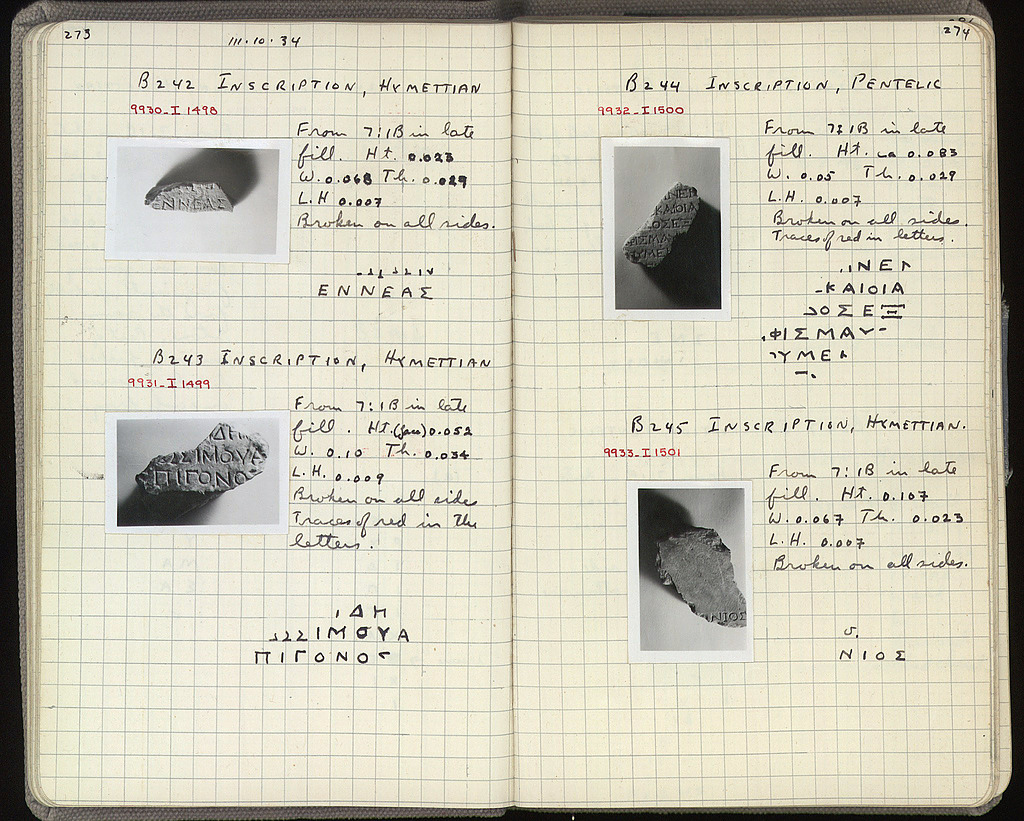 273
111·10·34
B242 INSCRIPTION, HYMETTIAN
9930-I 1498
From 7:1B in late
fill. Ht. 0.023
W. 0.068 Th. 0.029
L.H 0.007
Broken on all sides.
ΕΝΝΕΑΣ
B243 INSCRIPTION, HYMETTIAN
9931-I 1499
From 7:1B in late
fill. Ht. (face) 0.052
W. 0.10 Th. 0.034
L.H. 0.009
Broken on all sides
Traces of red in the
letters.
ΔΗ
ΣΙΜΟΥΑ
ΠΙΓΟΝΟ
274
B244 INSCRIPTION, PENTELIC
9932-I 1500
From 7:1B in late
fill. Ht. ca 0.083
W. 0.05 Th. 0.029
L.H. 0.007
Broken on all sides.
Traces of red in letters.
ΙΝΕΓ
ΚΑΙΟΙΑ
ΟΣΕΞ
ΦΙΣΜΑΥ
ΥΜΕ
B245 INSCRIPTION, HYMETTIAN.
9933-I 1501
From 7:1B in late
fill. Ht. 0.107
W. 0.067 Th. 0.023
L.H. 0.007
Broken on all sides.
ΝΙΟΣ